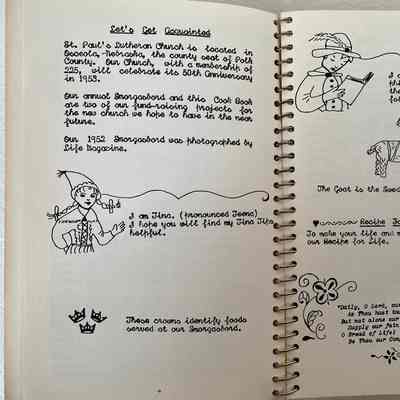 Let's Get Acquainted
St. Paul's Lutheran Church is located in
Osceola, Nebraska, the county seat of Polk
County. Our Church, with a membership of
225, will celebrate its 50th Anniversary
in 1953.
Our annual Smorgasbord and this Cook Book
are two of our fund-raising projects for
the new church we hope to have in the near
future.
Our 1952 Smorgasbord was photographed by
Life Magazine.
I am Tina. (pronounced Teena)
I hope you will find my Tina Tips
helpful.
These crowns identify foods
served at our Smorgasbord.
The Goat is the
Recipe
To make your life and
our Recipe for Life.
"Daily, O Lord, our
is Thou hast
But not alone our
Supply our
O Bread of Life!
Be Thou our